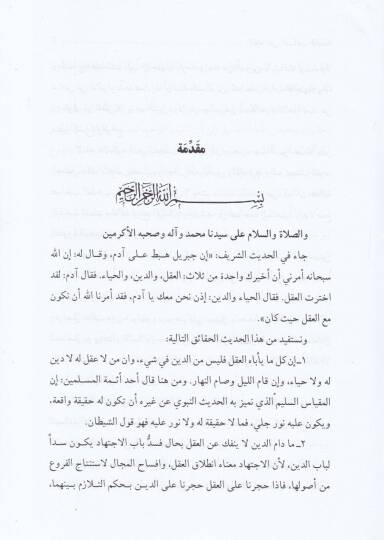 مقَدِّمَة
بسم الله الرحمن الرحيم
والصلاة والسلام على سيدنا محمد وآله وصحبه الأكرمين
جاء في الحديث الشريف: «إن جبريل هبط على آدم، وقال له: إن الله
سبحانه أمرني أن أخيرك واحدة من ثلاث: العقل، والدين، والحياء. فقال آدم: لقد
اخترت العقل. فقال الحياء والدين: إذن نحن معك يا آدم، فقد أمرنا الله أن نكون
مع العقل حيث كان».
ونستفيد من هذا الحديث الحقائق التالية:
١ــ إن كل ما يأباه العقل فليس من الدين في شيء، وان من لا عقل له لا دين
له ولا حياء، وإن قام الليل وصام النهار. ومن هنا قال أحد أئمة المسلمين: إن
المقياس السليم الذي نميز به الحديث النبوي عن غيره أن تكون له حقيقة واقعة،
ويكون عليه نور جلي، فما لا حقيقة له ولا نور عليه فهو قول الشيطان.
٢ــ ما دام الدين لا ينفك عن العقل بحال فسدُّ باب الاجتهاد يكون سداً
لباب الدين، لأن الاجتهاد معناه انطلاق العقل، وافساح المجال لاستنتاج الفروع
من أصولها، فاذا حجرنا على العقل حجرنا على الدين بحكم التلازم بينهما،